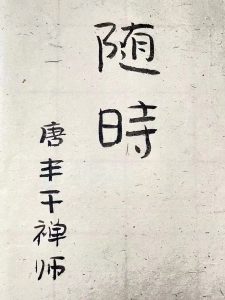 随時
唐丰干禅师